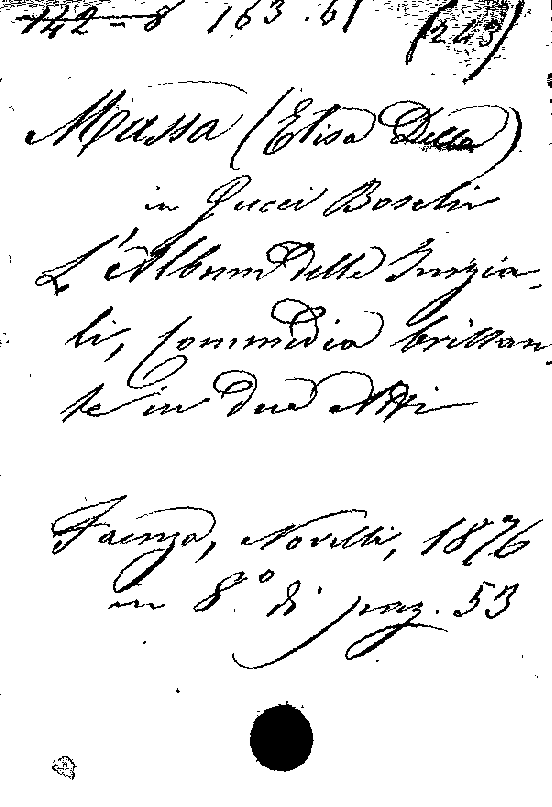 142-8 163.61 (243)
Massa (Elisa Della)
in Gucci Boschi
L'Album delle Inizia-
li, Commedia brillan-
te in due Atti
Faenza, Novelli, 1876
in 8.º di pag. 53